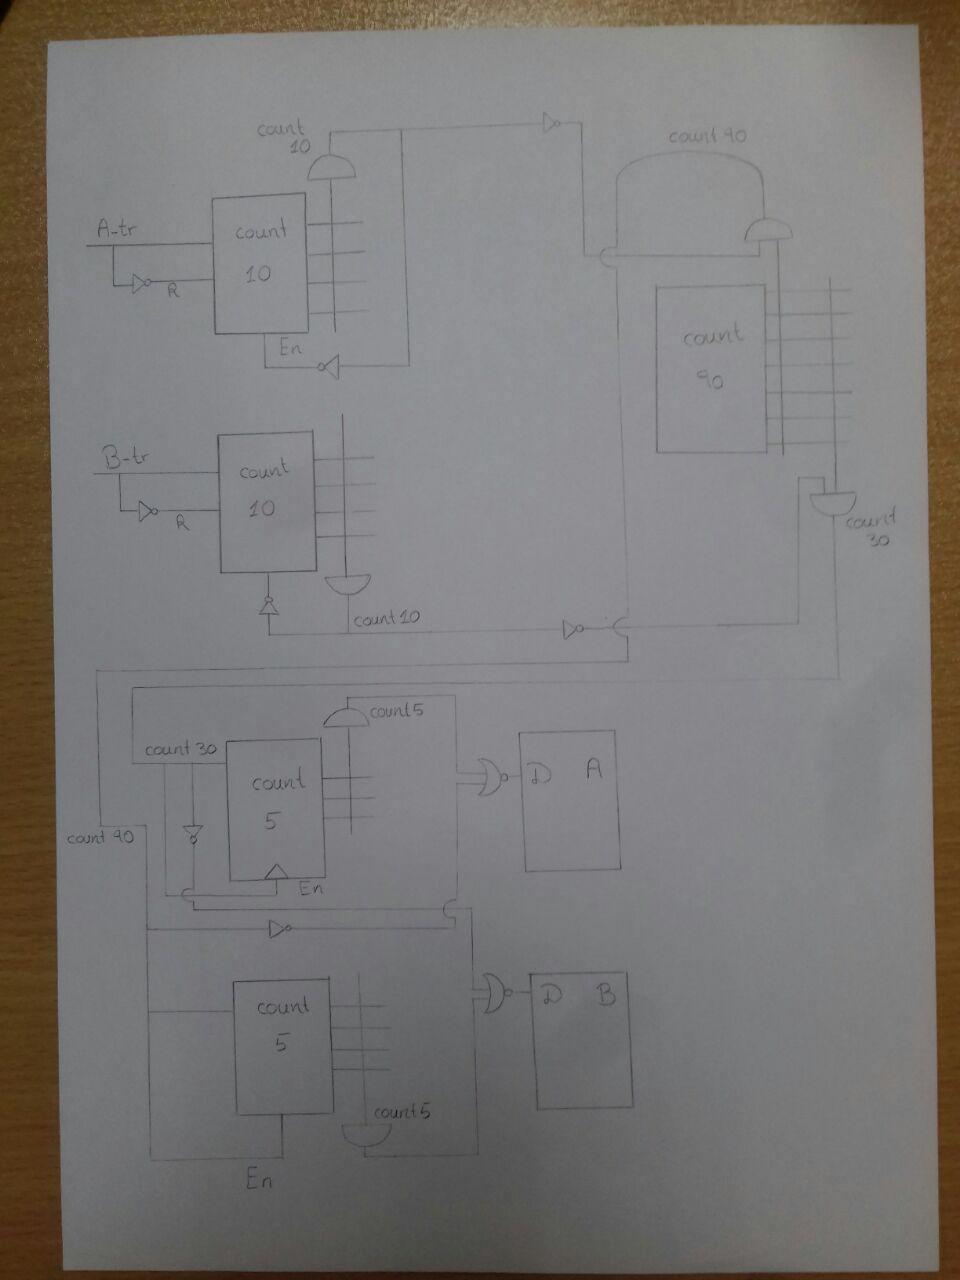 count
10
count 90
A-tr
count
10
R
En
count
90
B-tr
count
10
R
count
30
count 10
count 5
count 30
count
5
D A
count 90
En
count
5
D B
count 5
En